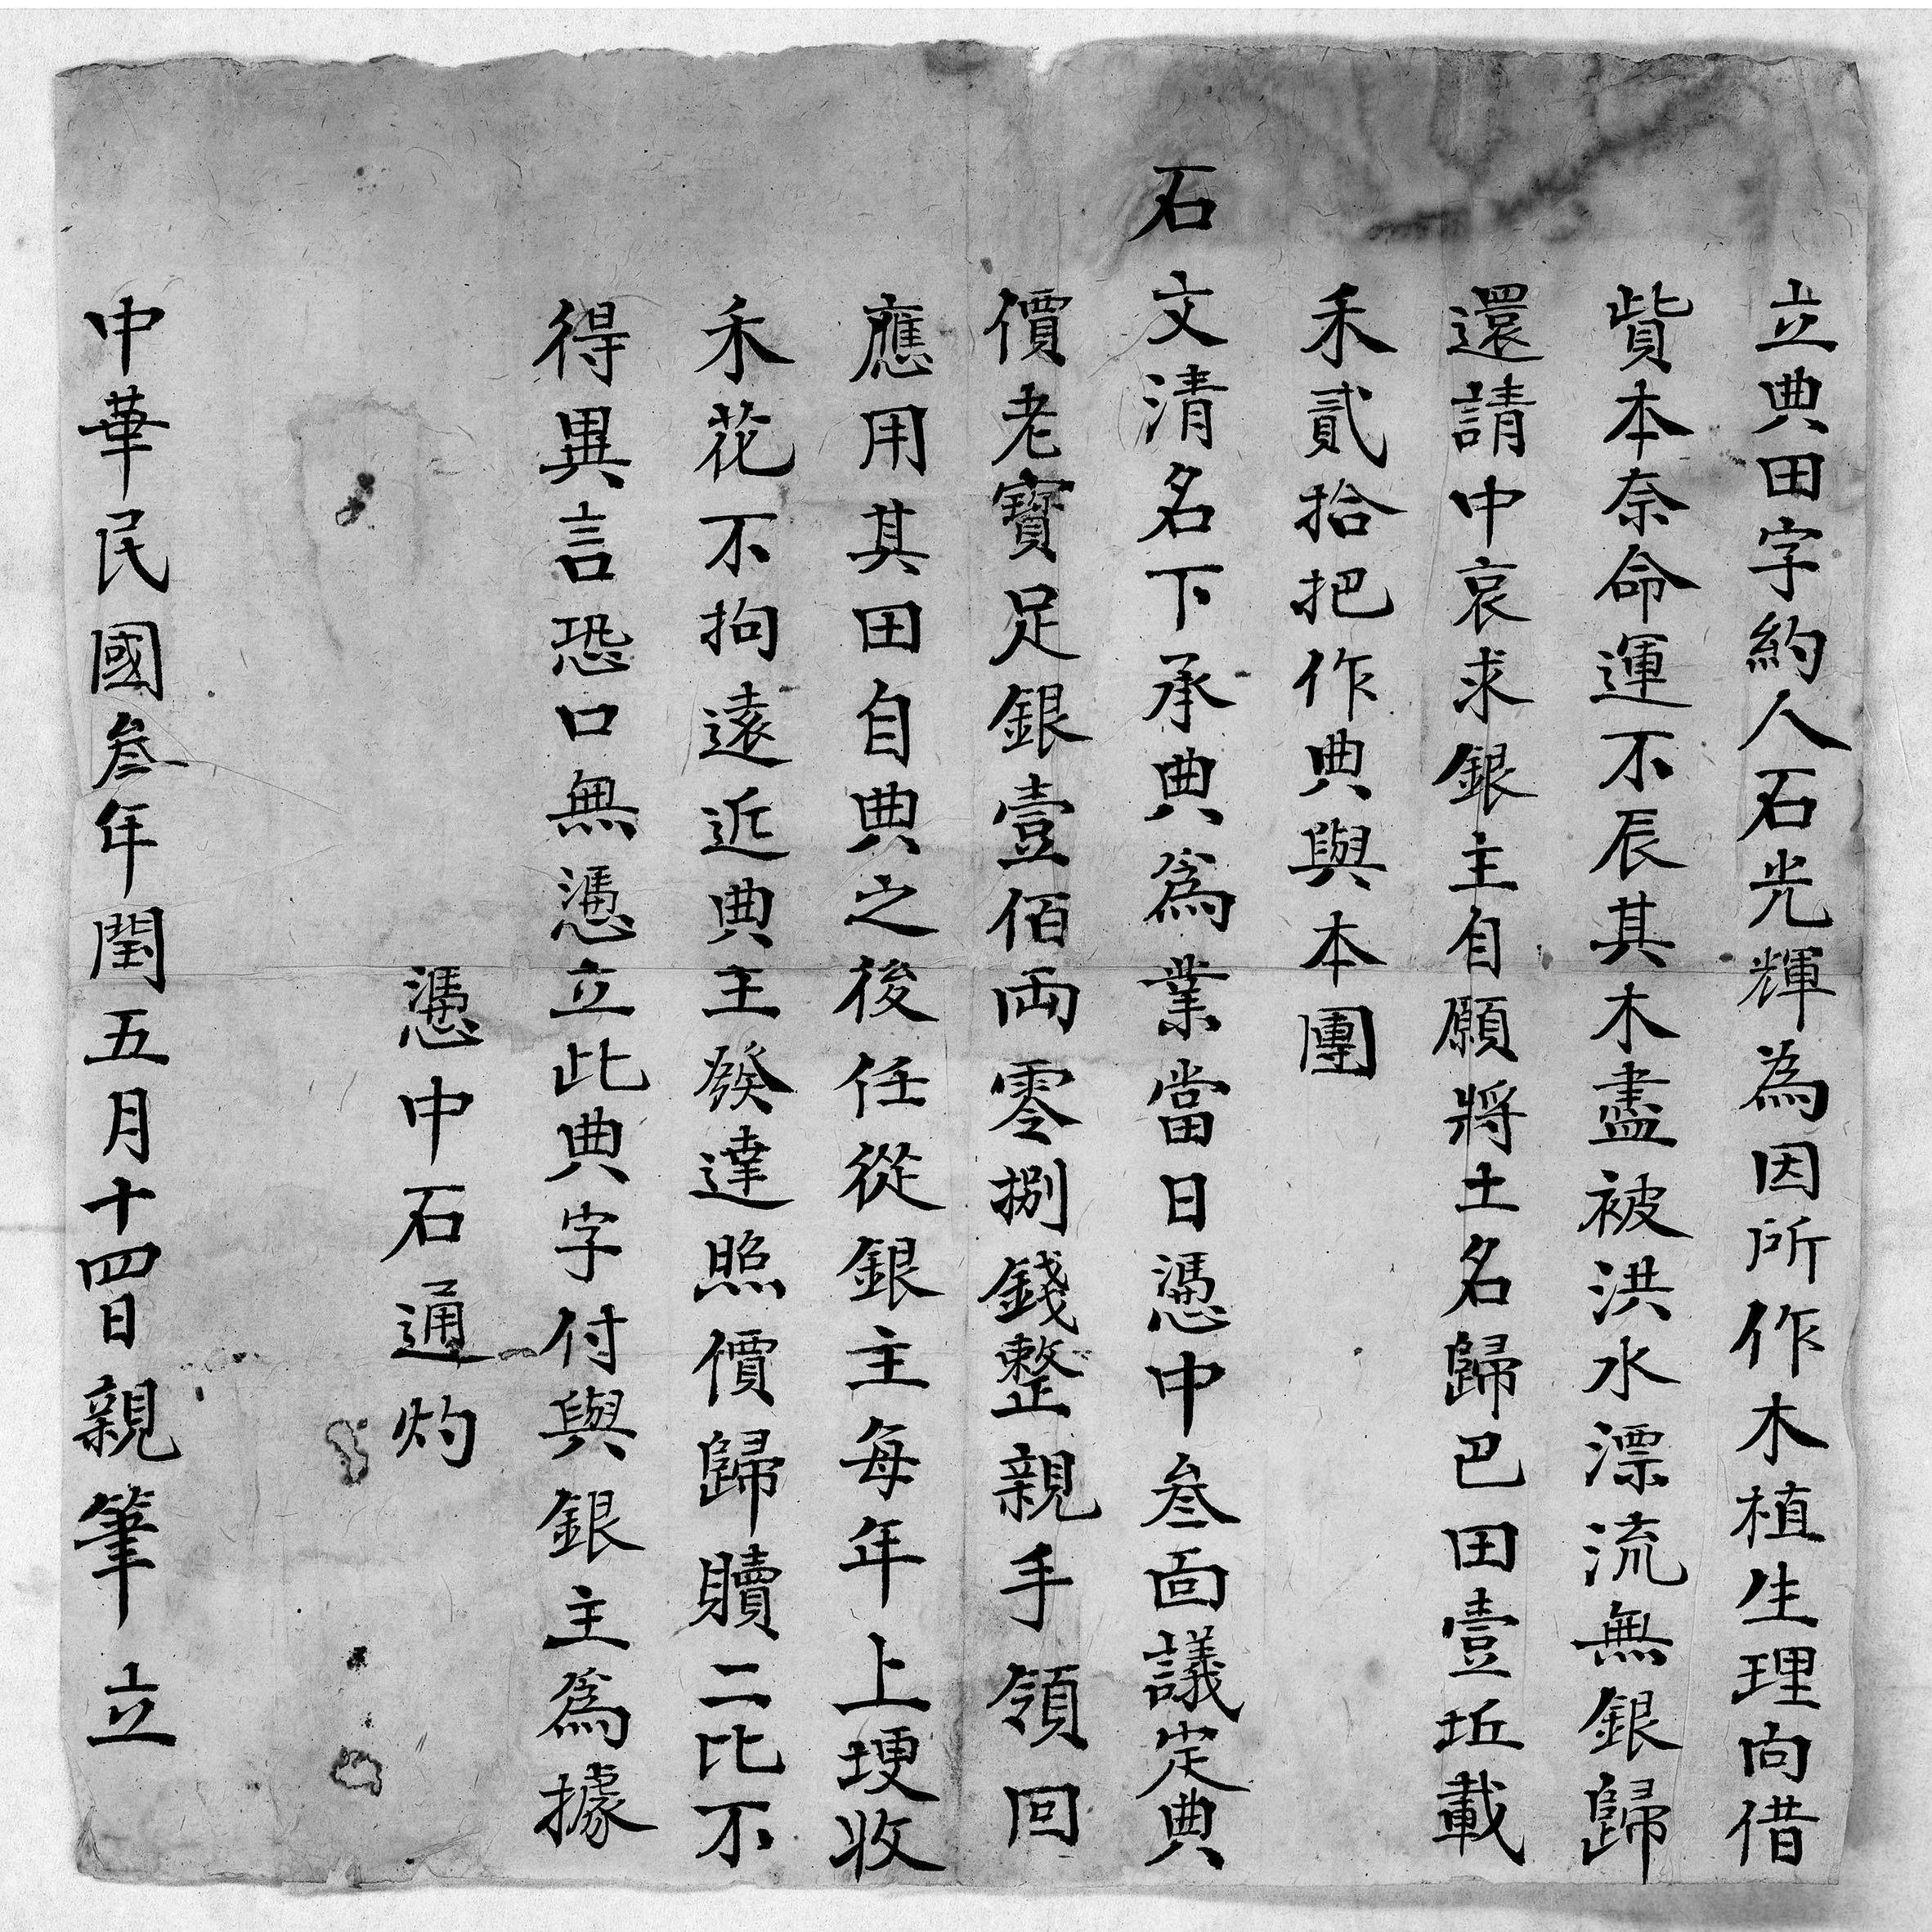 立典田字約人石光輝為因所作木植生理向借
貲本奈命運不辰其木盡被洪水漂流無銀歸
還請中哀求銀主自願將土名歸巴田壹坵載
禾貳拾把作典與本團
石文清名下承典為業當日憑中叁面議定典
價老寳足銀壹佰両零捌錢整親手領回
應用其田自典之後任從銀主每年上埂收
禾花不拘遠近典主發達照價歸贖二比不
得異言恐口無憑立此典字付與銀主為據
憑中石通灼
中華民國叁年閏五月十四日親筆立